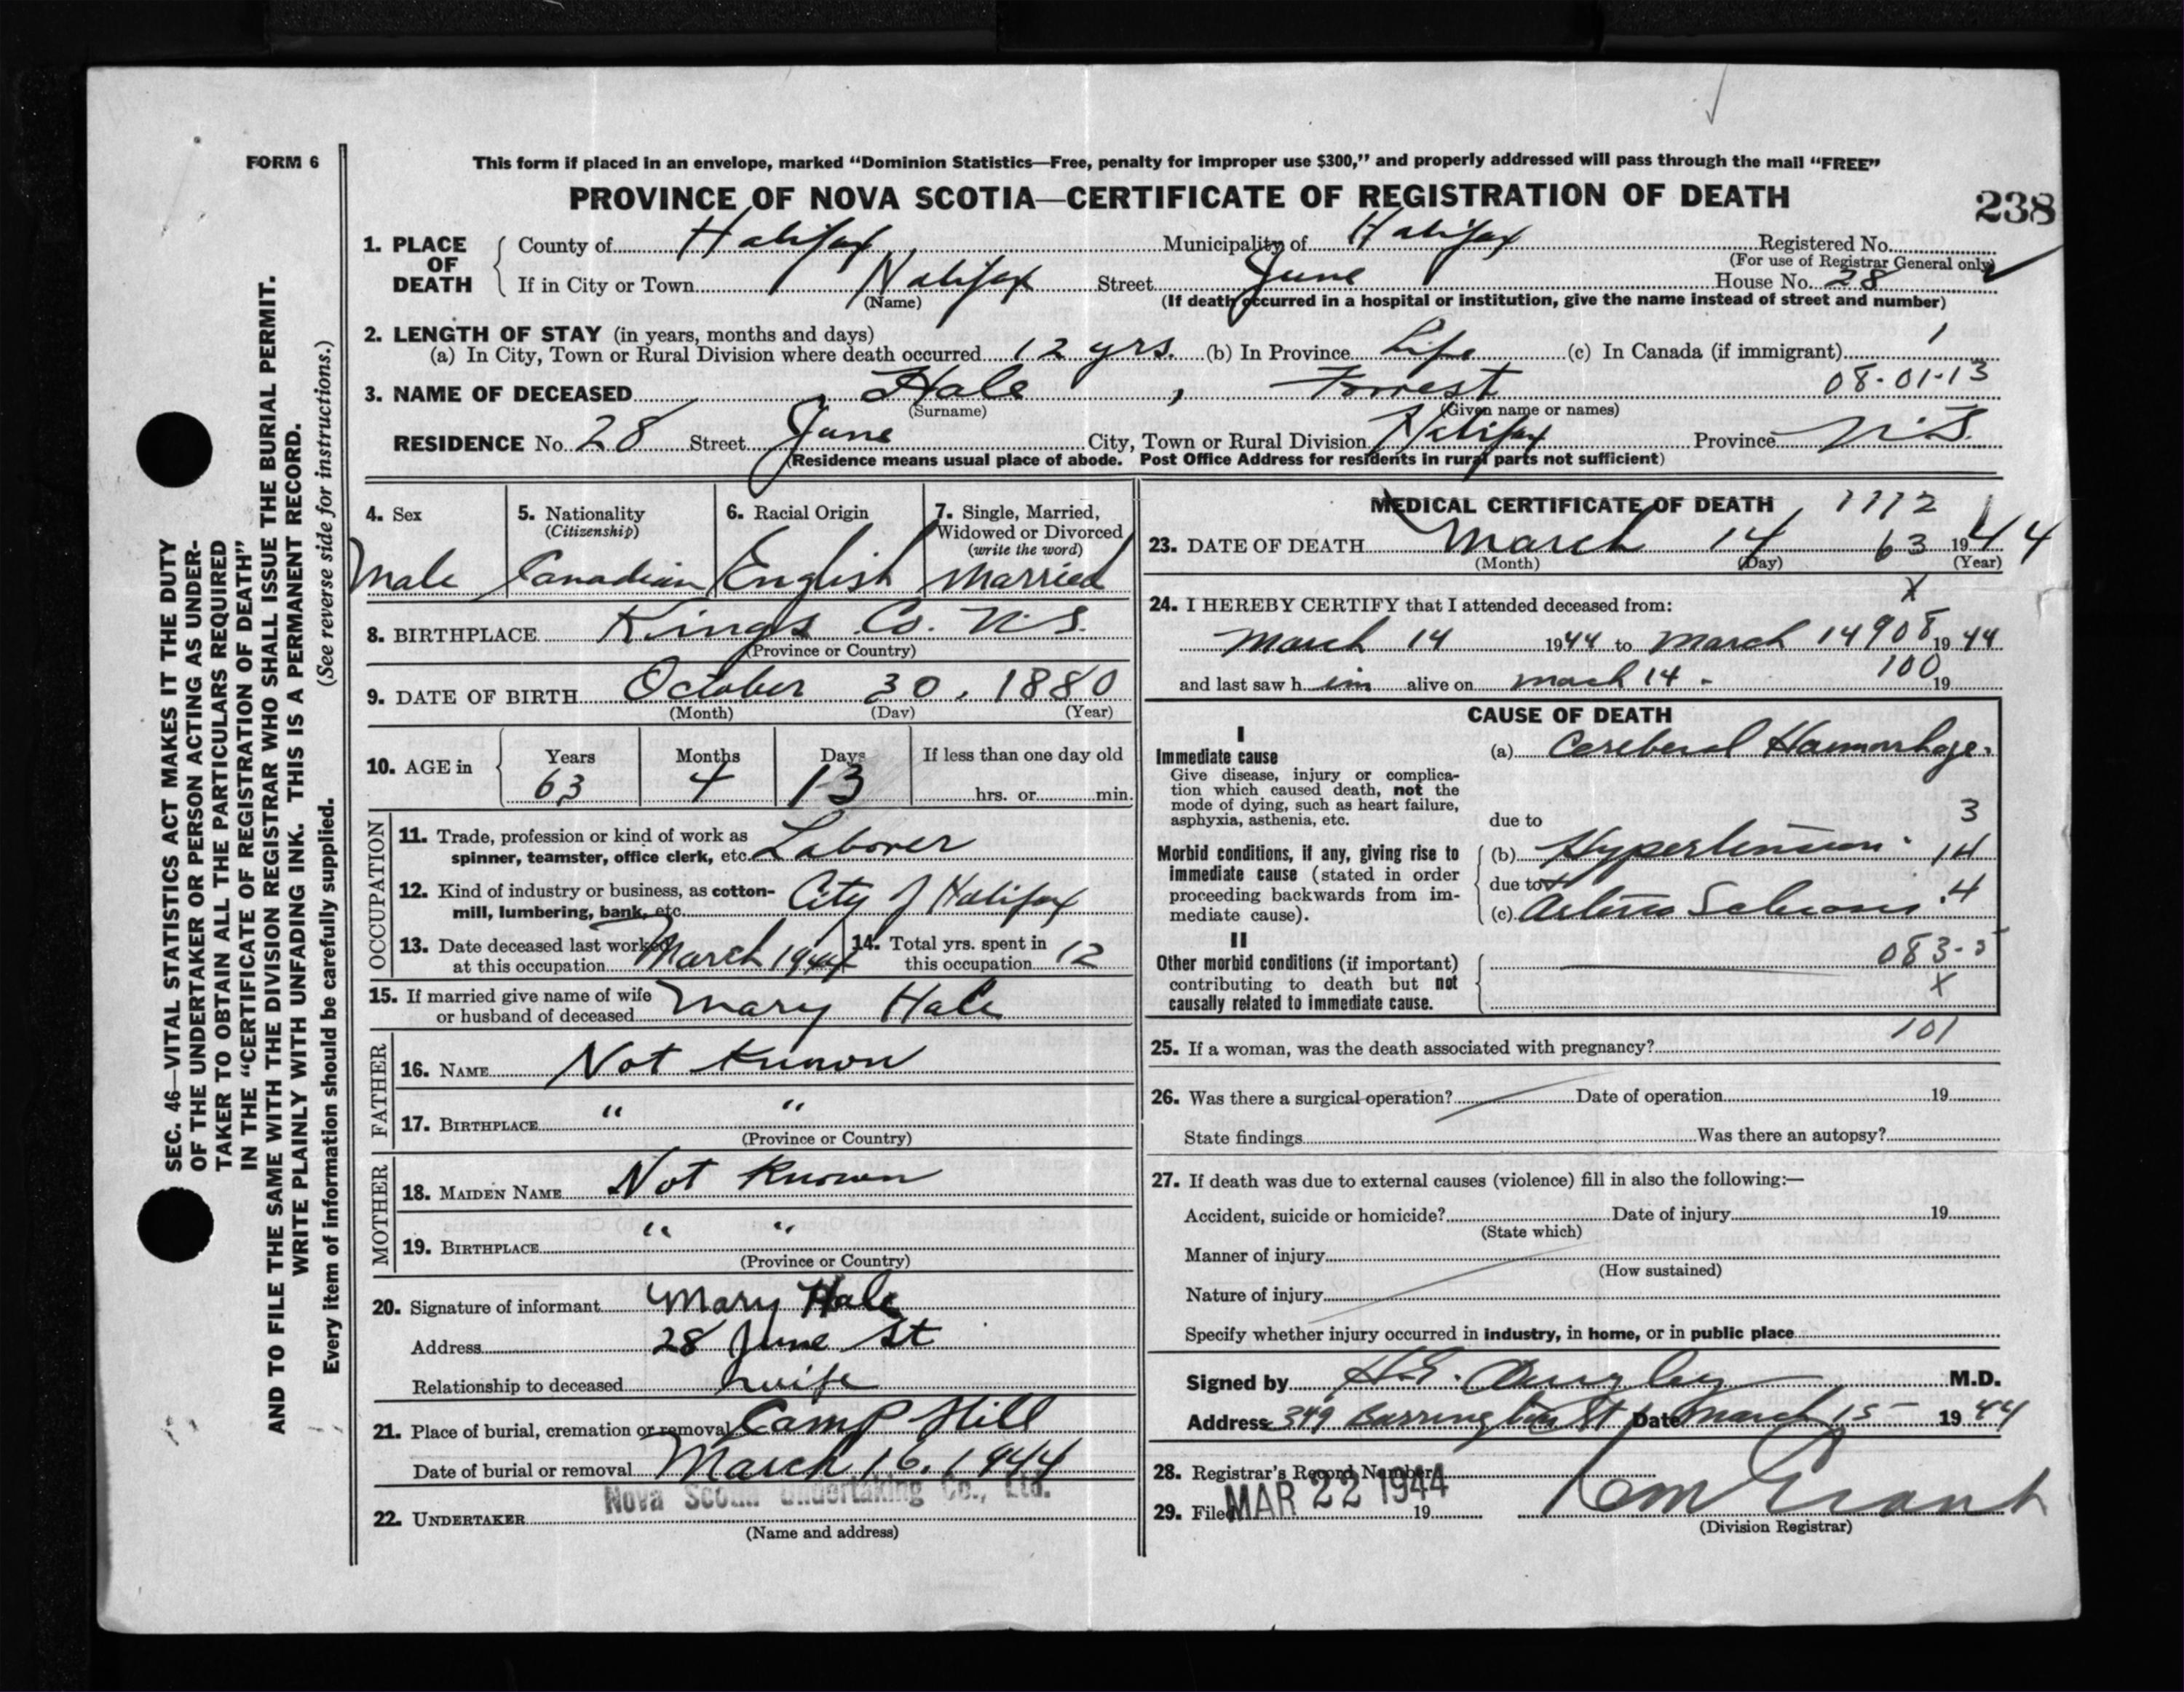 FORM 6
This form if placed in an envelope, marked "Dominion Statistics—Free, penalty for improper use $300," and properly addressed will pass through the mail "FREE"
PROVINCE OF NOVA SCOTIA—CERTIFICATE OF REGISTRATION OF DEATH
238
1. PLACE OF DEATH
County of Halifax Municipality of Halifax Registered No.
(For use of Registrar General only)
If in City or Town Halifax Street June House No. 28
(Name) (If death occurred in a hospital or institution, give the name instead of street and number)
2. LENGTH OF STAY (in years, months and days) 1
(a) In City, Town or Rural Division where death occurred 12 yrs. (b) In Province Life (c) In Canada (if immigrant)
08-01-13
3. NAME OF DECEASED Hale, Forrest
(Surname) (Given name or names)
RESIDENCE No. 28 Street June City, Town or Rural Division Halifax Province N.S.
(Residence means usual place of abode. Post Office Address for residents in rural parts not sufficient)
4. Sex
Male
5. Nationality
(Citizenship)
Canadian
6. Racial Origin
English
7. Single, Married,
Widowed or Divorced
(write the word)
Married
8. BIRTHPLACE Kings Co. N.S.
(Province or Country)
9. DATE OF BIRTH October 30, 1880
(Month) (Day) (Year)
10. AGE in
Years Months Days If less than one day old
63 4 13 hrs. or min.
OCCUPATION
11. Trade, profession or kind of work as
spinner, teamster, office clerk, etc. Laborer
12. Kind of industry or business, as cotton-
mill, lumbering, bank, etc. City of Halifax
13. Date deceased last worked
at this occupation March 1944
14. Total yrs. spent in
this occupation 12
15. If married give name of wife
or husband of deceased Mary Hale
FATHER
16. NAME Not Known
17. BIRTHPLACE " "
(Province or Country)
MOTHER
18. MAIDEN NAME Not Known
19. BIRTHPLACE " "
(Province or Country)
20. Signature of informant Mary Hale
Address 28 June St
Relationship to deceased wife
21. Place of burial, cremation or removal Camp Hill
Date of burial or removal March 16, 1944
Nova Scotia Undertaking Co., Ltd.
22. UNDERTAKER
(Name and address)
MEDICAL CERTIFICATE OF DEATH 1112
23. DATE OF DEATH March 14 63 1944
(Month) (Day) (Year)
X
24. I HEREBY CERTIFY that I attended deceased from:
March 14 1944 to March 14 908 1944
and last saw h im alive on March 14 - 100 19
CAUSE OF DEATH
I
Immediate cause
Give disease, injury or complica-
tion which caused death, not the
mode of dying, such as heart failure,
asphyxia, asthenia, etc.
(a) Cereberal Haemorrhage.
3
due to
Morbid conditions, if any, giving rise to
immediate cause (stated in order
proceeding backwards from im-
mediate cause).
(b) Hypertension. 14
due to
(c) Arterio Sclerosis .4
II
Other morbid conditions (if important)
contributing to death but not
causally related to immediate cause.
083-5
X
101
25. If a woman, was the death associated with pregnancy?
26. Was there a surgical operation? Date of operation 19
State findings Was there an autopsy?
27. If death was due to external causes (violence) fill in also the following:—
Accident, suicide or homicide? Date of injury 19
(State which)
Manner of injury
(How sustained)
Nature of injury
Specify whether injury occurred in industry, in home, or in public place
Signed by M.D.
Address 349 Barrington St Date March 15 1944
28. Registrar's Record Number
29. Filed MAR 22 1944 19
(Division Registrar)
SEC. 46—VITAL STATISTICS ACT MAKES IT THE DUTY
OF THE UNDERTAKER OR PERSON ACTING AS UNDER-
TAKER TO OBTAIN ALL THE PARTICULARS REQUIRED
IN THE "CERTIFICATE OF REGISTRATION OF DEATH"
AND TO FILE THE SAME WITH THE DIVISION REGISTRAR WHO SHALL ISSUE THE BURIAL PERMIT.
WRITE PLAINLY WITH UNFADING INK. THIS IS A PERMANENT RECORD.
Every item of information should be carefully supplied. (See reverse side for instructions.)